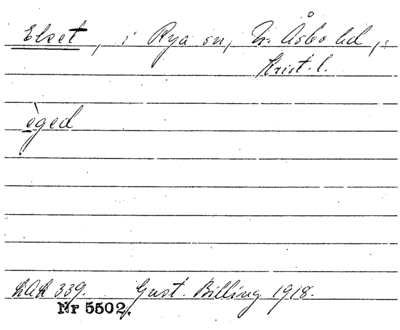 Elset, i Rya sn, N. Åsbo hd,
Krist. l.
èged
LAA 339. Gust. Billing 1918.
Nr 5502.